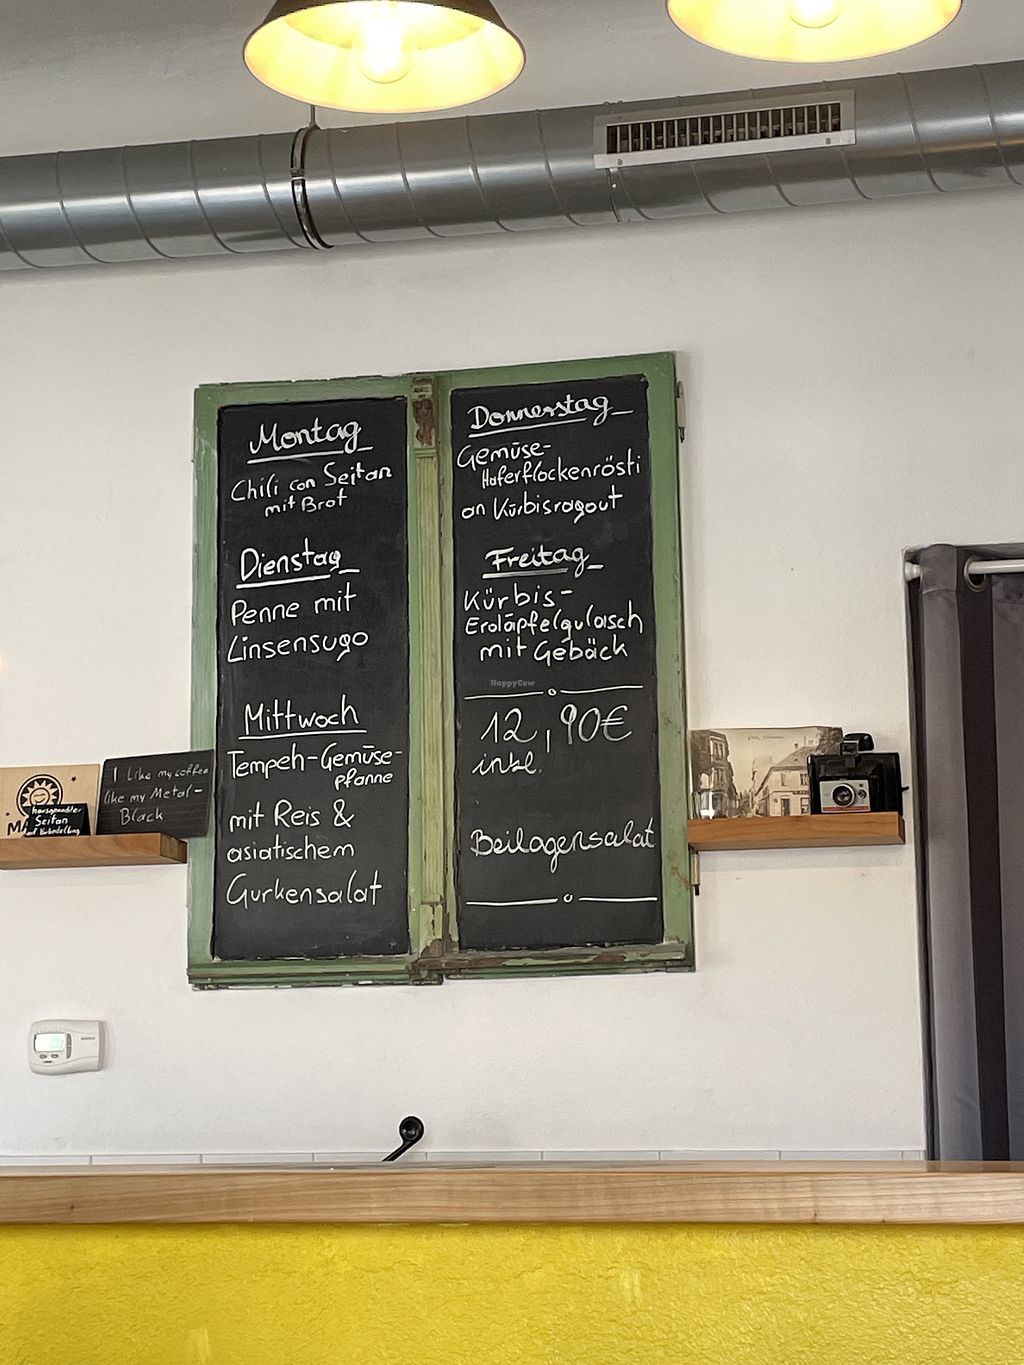 Montag
Chili con Seitan
mit Brot
Dienstag
Penne mit
Linsensugo
Mittwoch
Tempeh-Gemüse-
pfanne
mit Reis &
asiatischem
Gurkensalat
Donnerstag
Gemüse-
Haferflockenrösti
an Kürbisragout
Freitag
Kürbis-
Erdäpfelgulasch
mit Gebäck
HappyCow
12,90€
inkl.
Beilagensalat
I like my coffee
like my Metal-
Black
hausgemachter
Seitan
auf Vorbestellung